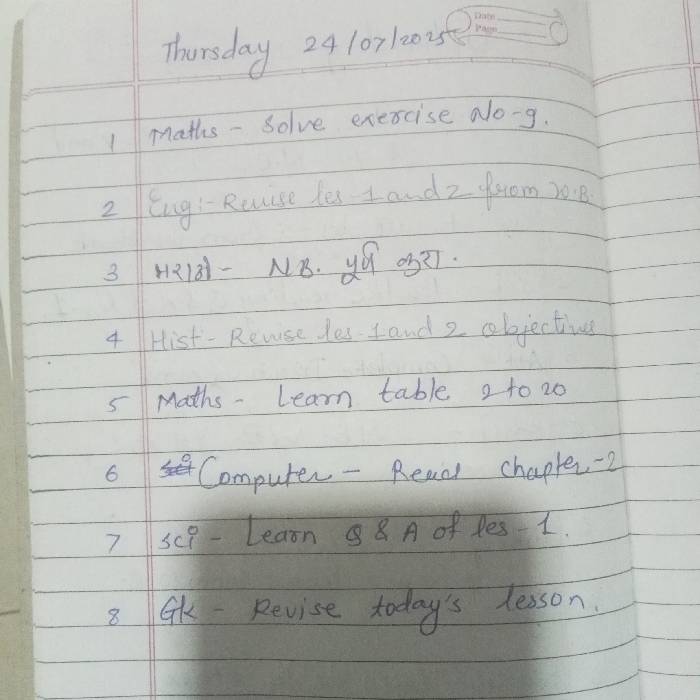 Date
Page
Thursday 24/07/2025
1 Maths - Solve exercise No-9.
2 Eng:- Revise les-1 and 2 from W.B.
3 मराठी - N.B. पूर्ण करा.
4 Hist - Revise les-1 and 2 objectives
5 Maths - Learn table 2 to 20
6 Computer - Read chapter-2
7 Sci - Learn Q & A of les-1.
8 Gk - Revise today's lesson.